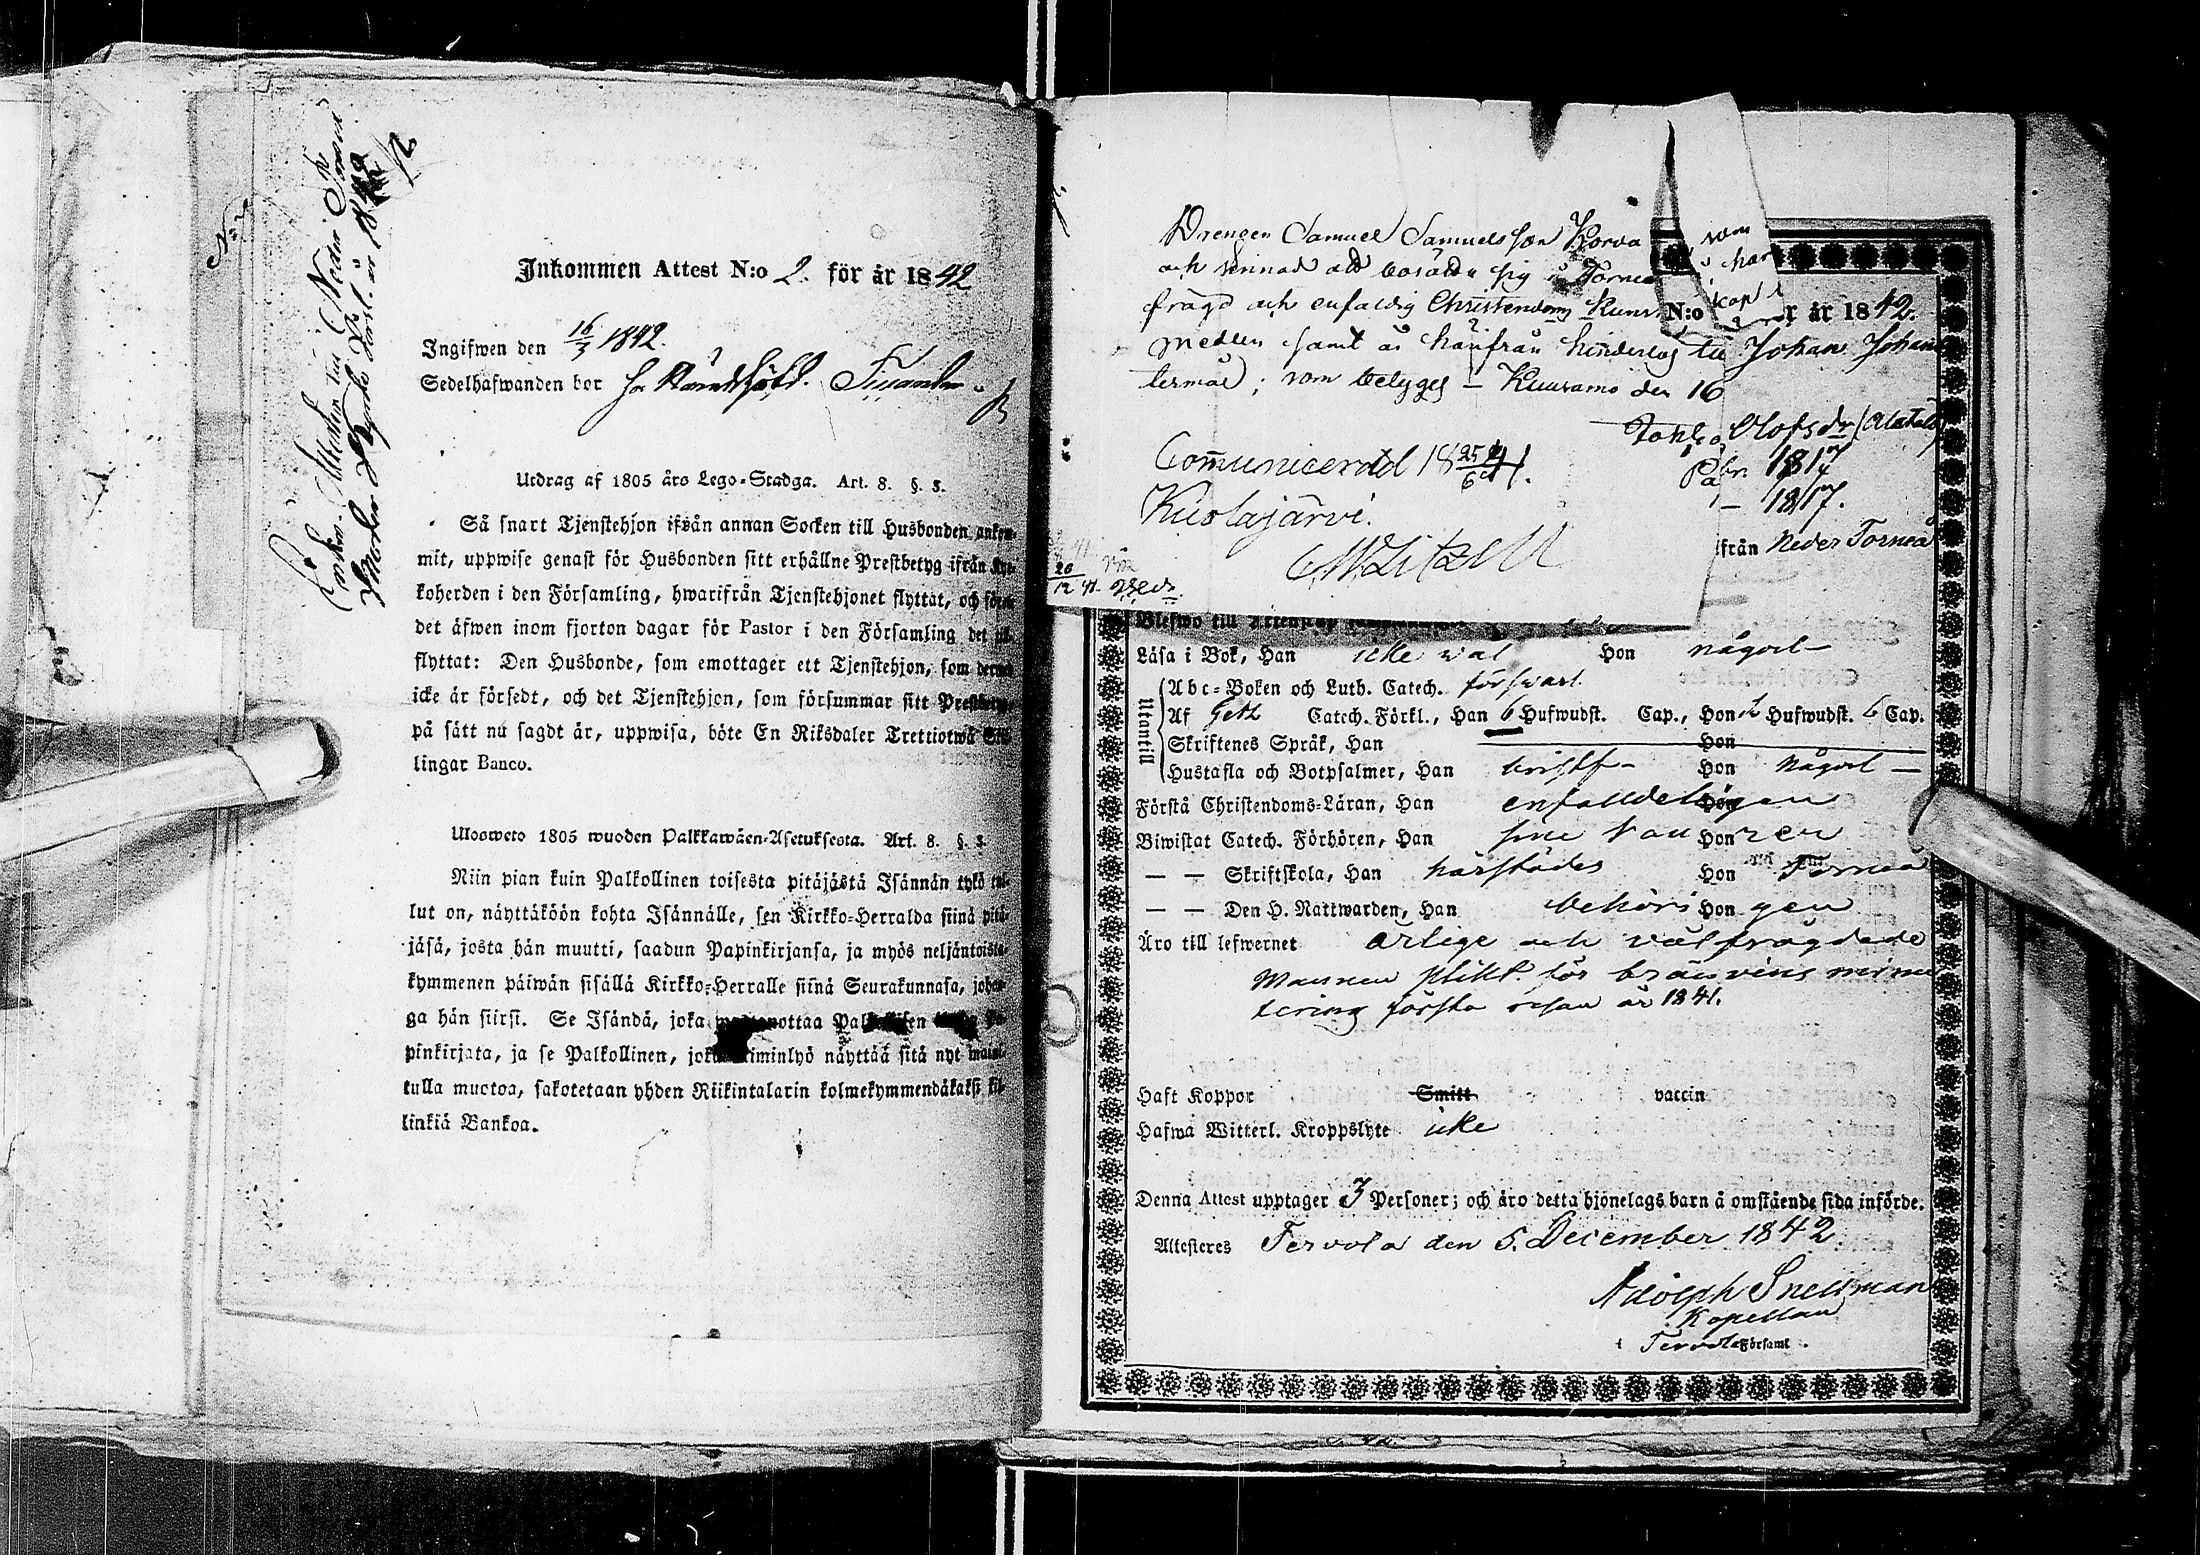 Inkommen Attest N:o 2. för år 1842
Ingifwen den 16/3 1842.
Sedelhafwanden bor
Utdrag af 1805 års Lego-Stadga. Art. 8. §. 3.
Så snart Tjenstehjon ifrån annan Socken till Husbonden ankom-
mit, uppwise genast för Husbonden sitt erhållne Prestbetyg ifrån Kyr-
koherden i den Församling, hwarifrån Tjenstehjonet flyttat, och förete
det äfwen inom fjorton dagar för Pastor i den Församling det
flyttat: Den Husbonde, som emottager ett Tjenstehjon, som dermed
icke är försedt, och det Tjenstehjon, som försummar sitt Prestbetyg,
på sätt nu sagdt är, uppwisa, böte En Riksdaler Trettiotwå Skil-
lingar Banco.
Ulosweto 1805 wuoden Palkkawäen-Asetuksesta. Art. 8. §. 3.
Niin pian kuin Palkollinen toisesta pitäjästä Isännän tykö tul-
lut on, näyttäköön kohta Isännälle, sen Kirkko-Herralda siinä pitä-
jäsä, josta hän muutti, saadun Papinkirjansa, ja myös neljäntoista-
kymmenen päiwän sisällä Kirkko-Herralle siinä Seurakunnasa, johon-
ga hän siirsi. Se Isändä, joka
pinkirjata, ja se Palkollinen, näyttää sitä nyt mainit-
tulla muotoa, sakotetaan yhden Riikintalarin kolmekymmendäkaksi kil-
linkiä Bankoa.
Drengen Samuel Samuelsson Korva som
och sinnad att bosätta sig i Torneå
frägd och enfaldig Christendoms Kuns N:o r år 1842.
medlen samt är härifrån hinderlös till Johan Johans
termål; som betyges - Kuusamo den 16
Olofsdr (Alatalo)
Communicerad 18 25/6 41. 1817
Kuolajärvi. 1817.
ifrån Neder Torneå
M Litzell
Läsa i Bok, Han icke väl Hon någorl-
Utantill
Abc-Boken och Luth. Catech. försvarl.
Af Geth Catech. Förkl., Han 6 Hufwudst. Cap., Hon Hufwudst. 6 Cap.
Skriftenes Språk, Han Hon
Hustafla och Botpsalmer, Han bristf- Hon någorl-
Förstå Christendoms-Läran, Han enfalldeligen Hon
Biwistat Catech. Förhören, Han Hon
— — Skriftskola, Han härstädes Hon Torneå
— — Den H. Nattwarden, Han behöri Hon gen
Äro till lefwernet ärlige och välfrägdade
Mannen plikt. för bränvins minu
tering första resan år 1841.
Haft Koppor Smitt vaccin
Hafwa Witterl. Kroppslyte icke
Denna Attest upptager 3 Personer; och äro detta hjonelags barn å omstående sida införde.
Attesteres Tervola den 5. December 1842
Adolph Snellman
Kapellan
i Tervola Församl.